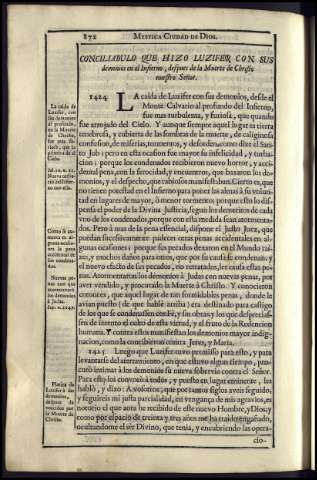 872 MYSTICA CIUDAD DE DIOS.
CONCILIABULO QUE HIZO LUZIFER CON SUS
demonios en el Infierno, despues de la Muerte de Christo
nuestro Señor.
1424 LA caida de Luzifer con sus demonios, desde el
Monte Calvario al profundo del Infierno,
fue mas turbulenta, y furiosa, que quando
fue arrojado del Cielo. Y aunque siempre aquel lugar es tierra
tenebrosa, y cubierta de las sombras de la muerte, de caliginosa
confusion, de miserias, tormentos, y desorden, como dize el Santo
Job; pero en esta ocasion fue mayor su infelicidad, y turba-
cion: porque los condenados recibieron nuevo horror, y acci-
dental pena, con la ferocidad, y encuentros, que baxaron los de-
monios, y el despecho, que rabiosos manifestaban. Cierto es, que
no tienen potestad en el Infierno para poner las almas à su volun-
tad en lugares de mayor, ò menor tormento; porque esto lo dis-
pensa el poder de la Divina Justicia, segun los demeritos de cada
vno de los condenados, porque con esta medida sean atormenta-
dos. Pero à mas de la pena essencial, dispone el Justo Juez, que
puedan successivamente padecer otras penas accidentales en al-
gunas ocasiones; porque sus pecados dexaron en el Mundo raì-
zes, y muchos daños para otros, que por su causa se condenan, y
el nuevo efecto de sus pecados, no retratados, les causa estas pe-
nas. Atormentaron los demonios à Judas con nuevas penas, por
aver vendido, y procurado la Muerte à Christo. Y conocieron
entonces, que aquel lugar de tan formidables penas, donde le
avian puesto (de que hablè arriba) era destinado para castigo
de los que se condenassen con Fè, y sin obras, y los que desprecias-
sen de intento el culto de esta virtud, y el fruto de la Redencion
humana. Y contra estos manifiestan los demonios mayor indig-
nacion, como la concibieron contra Jesus, y Maria.
1425 Luego que Luzifer tuvo permisso para esto, y para
levantarse del aterramiento, en que estuvo algun tiempo, procu-
rò intimar à los demonios su nueva sobervia contra el Señor.
Para esto los convocò à todos, y puesto en lugar eminente, les
hablò, y dixo: A vosotros, que por tantos siglos aveis seguido,
y seguireis mi justa parcialidad, en vengança de mis agravios, es
notorio el que aora he recibido de este nuevo Hombre, y Dios; y
como por espacio de treinta y tres años me ha traìdo engañado,
ocultandome el sèr Divino, que tenia, y encubriendo las opera-
cio-
La caìda de
Luzifer, con
sus demonios
al profundo,
en la Muerte
de Christo,
fue mas tur-
bada, que la
primera de el
Cielo.
Como se au-
menta en al-
gunas ocasio-
nes la pena
accidental de
los condena-
dos.
Nuevas pe-
nas con que
atormentaron
los demonios
à Judas.
Platica de
Luzifer à los
demonios,
despues de
vencidos por
la Muerte de
Christo.